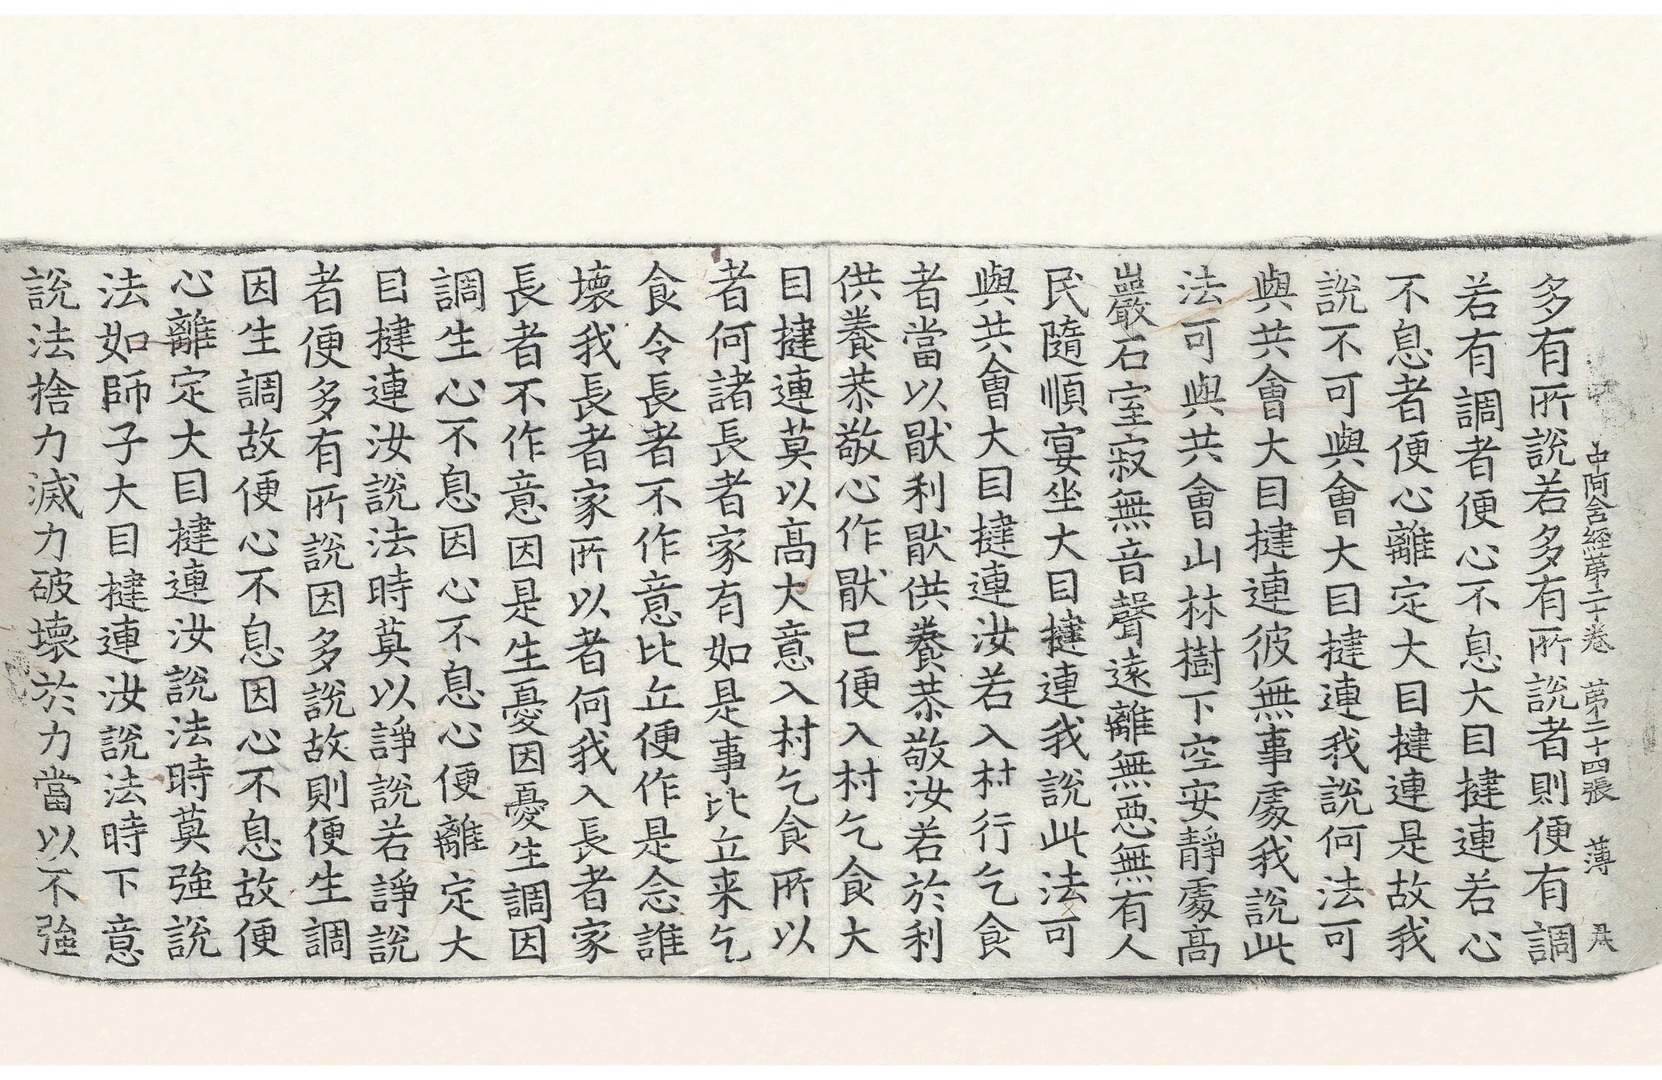 中阿含經第二十卷 第二十四張 薄
多有所說若多有所說者則便有調
若有調者便心不息大目揵連若心
不息者便心離定大目揵連是故我
說不可與會大目揵連我說何法可
與共會大目揵連彼無事處我說此
法可與共會山林樹下空安靜處高
巖石室寂無音聲遠離無惡無有人
民隨順宴坐大目揵連我說此法可
與共會大目揵連汝若入村行乞食
者當以猒利猒供養恭敬汝若於利
供養恭敬心作猒已便入村乞食大
目揵連莫以高大意入村乞食所以
者何諸長者家有如是事比丘来乞
食令長者不作意比丘便作是念誰
壞我長者家所以者何我入長者家
長者不作意因是生憂因憂生調因
調生心不息因心不息心便離定大
目揵連汝說法時莫以諍說若諍說
者便多有所說因多說故則便生調
因生調故便心不息因心不息故便
心離定大目揵連汝說法時莫強說
法如師子大目揵連汝說法時下意
說法捨力滅力破壞於力當以不強